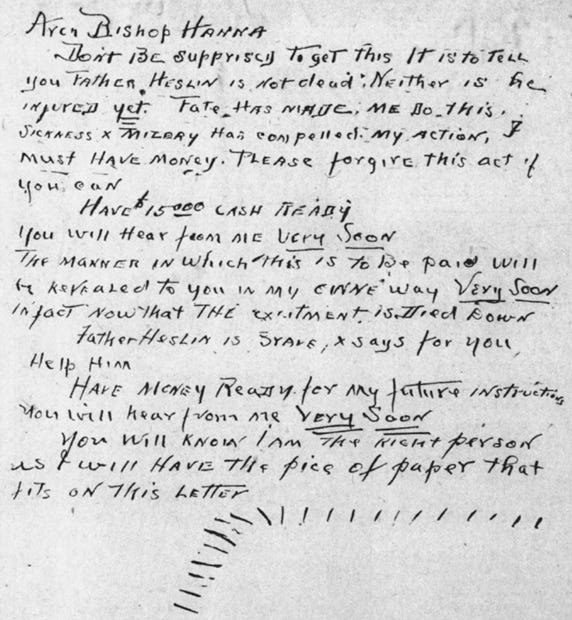 Arch Bishop HANNA
Dont BE supprised To get this It is to TELL
you FATHER HESLIN is Not dead. Neither is he
injurED yet. FATE HAS MADE ME DO THIS.
SICKNESS x MIZERY Has compelled my ACTION, I
Must HAVE MONEY. PLEASE forgive this act if
you can
HAVE $15000 CASH READY
You will HEAR from ME VERY SOON
THE MANNER IN Which this IS TO be paid WILL
be REVEALED to you IN my OWNE way VERY SOON
In fact Now that THE exsitment is Died DOWN
FATHER HESLIN is SAVE, x says for you
Help HIM
HAVE MONEY READY for my future INSTRUCTIONS
You will hear from me VERY SOON
You WILL KNOW I AM THE RIGHT person
as I WILL HAVE THE pice of paper that
fits ON THIS LETTER